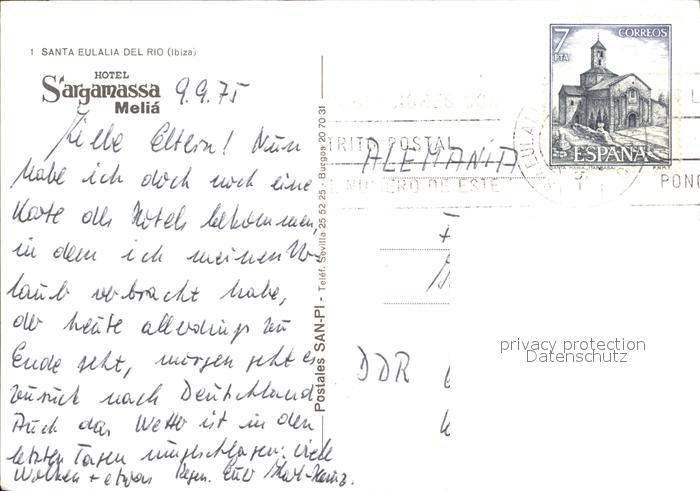 1 SANTA EULALIA DEL RIO (Ibiza)
HOTEL
S'argamassa
Meliá
9.9.75
Liebe Eltern! Nun
habe ich doch noch eine
Karte des Hotels bekommen,
in dem ich meinen Ur-
laub verbracht habe,
der heute allerdings zu
Ende geht, morgen geht es
zurück nach Deutschland.
Auch das Wetter ist in den
letzten Tagen umgeschlagen: viele
Wolken + etwas Regen. Euer Karl-Heinz.
Postales SAN-PI - Teléf. Sevilla 25 52 25 - Burgos 20 70 31
7
PTA
CORREOS
ESPAÑA
F.N.M.T.
TRITO POSTAL
NUMERO DE ESTE
PONG
ALEMANIA
DDR
privacy protection
Datenschutz